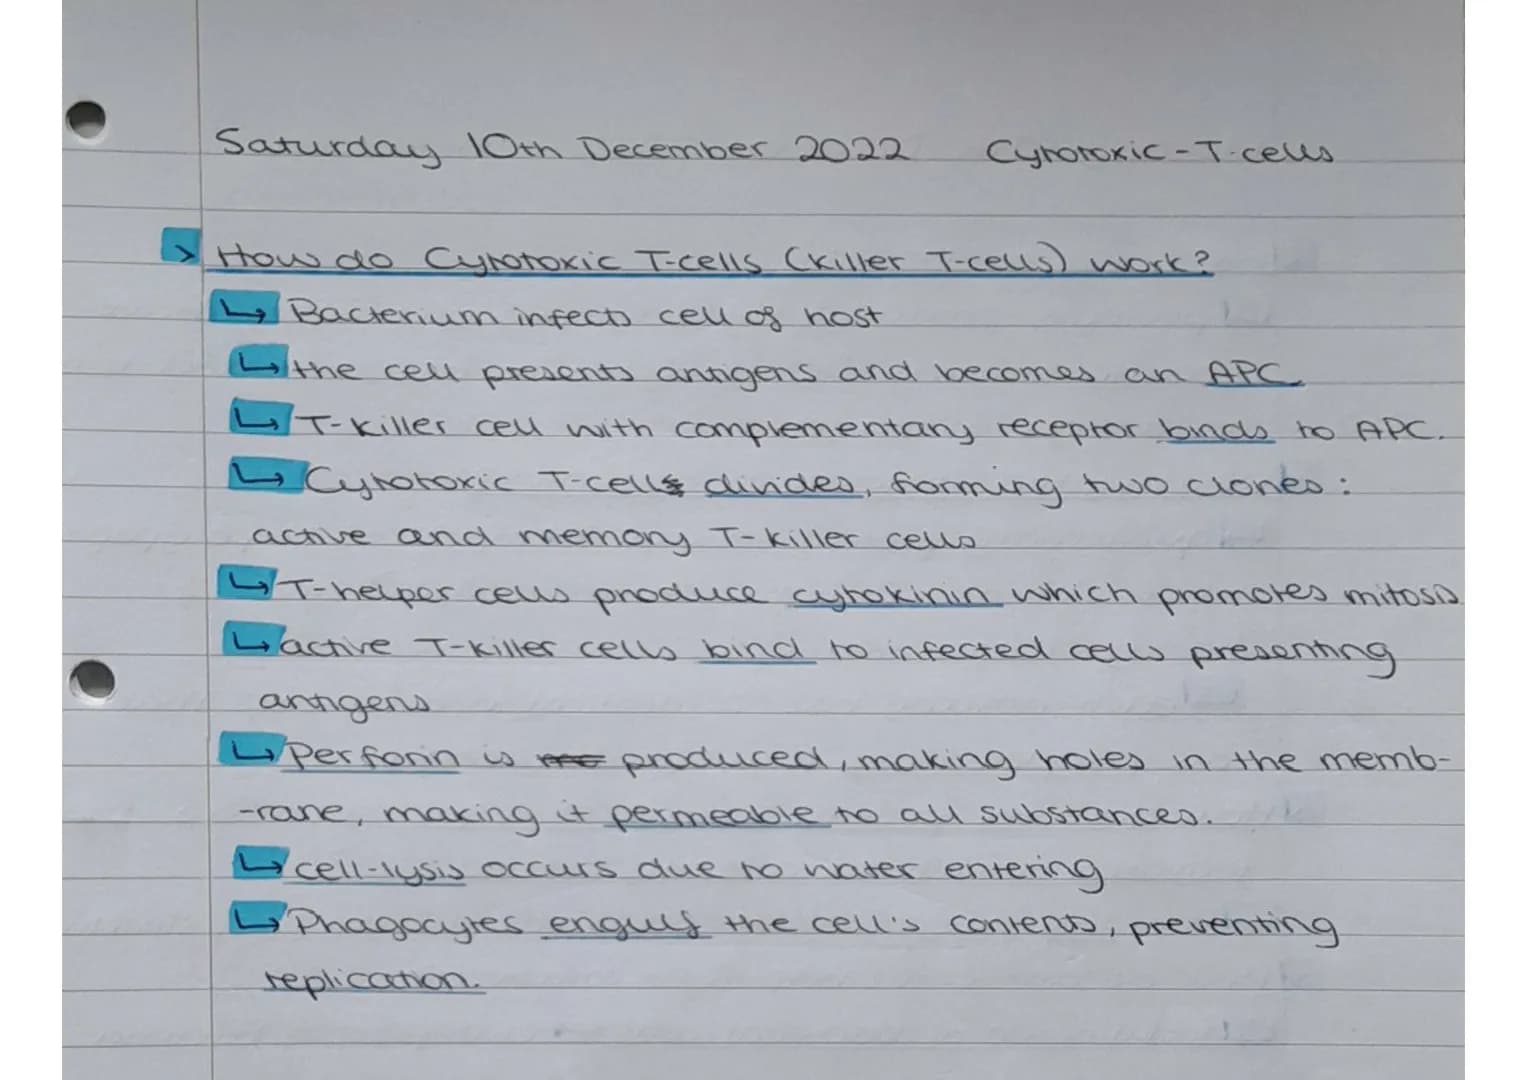 Saturday 10th December 2022 Cytotoxic-T-cells
> How do Cytotoxic T-cells (killer T-cells) work?
↳ Bacterium infects cell of host
↳ the cell presents antigens and becomes an APC.
↳ T-killer cell with complementary receptor binds to APC.
↳ Cytotoxic T-cells divides, forming two clones:
active and memory T-killer cells
↳ T-helper cells produce cytokinin which promotes mitosis
↳ active T-killer cells bind to infected cells presenting
antigens
↳ Perforin is produced, making holes in the memb-
-rane, making it permeable to all substances.
↳ cell-lysis occurs due to water entering
↳ Phagocytes engulf the cell's contents, preventing
replication.